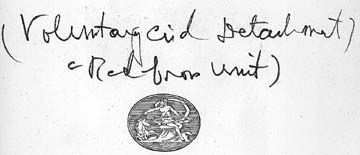 (Voluntary aid Detachment)
a Red Cross Unit)